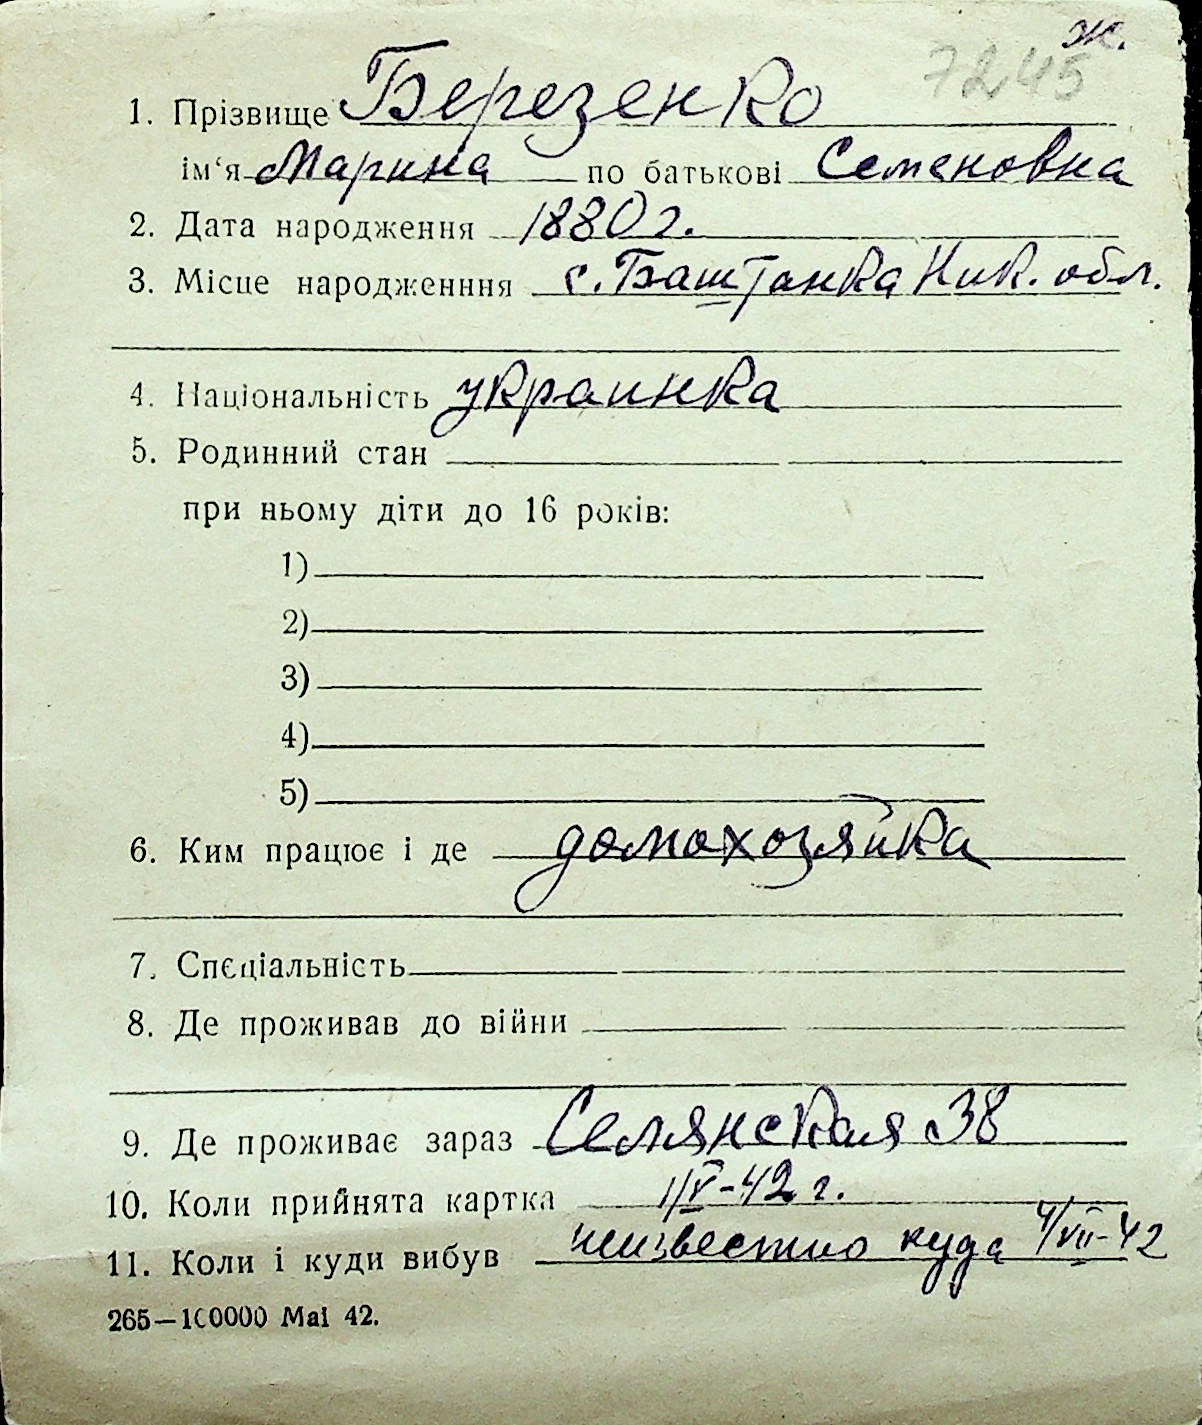 ж.
7245
1. Прізвище Березенко
ім‘я Марина по батькові Семеновна
2. Дата народження 1880 г.
3. Місце народженння с. Баштанка Ник. обл.
4. Національність украинка
5. Родинний стан
при ньому діти до 16 років:
1)
2)
3)
4)
5)
6. Ким працює і де домохозяйка
7. Спєціальність
8. Де проживав до війни
9. Де проживає зараз Селянская 38
10. Коли прийнята картка 1/V-42 г.
11. Коли і куди вибув неизвестно куда 4/VII-42
265—100000 Mai 42.